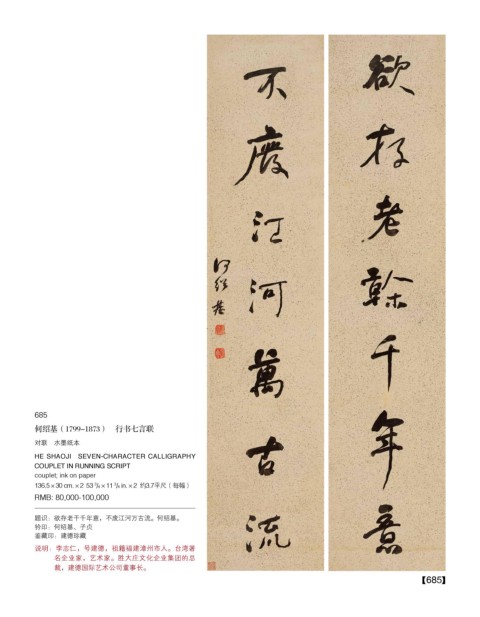 欲存老榦千年意
不廢江河萬古流
何紹基
685
何绍基（1799–1873） 行书七言联
对联 水墨纸本
HE SHAOJI SEVEN-CHARACTER CALLIGRAPHY
COUPLET IN RUNNING SCRIPT
couplet; ink on paper
136.5×30 cm.×2 53 3/4×11 3/4 in.×2 约3.7平尺（每幅）
RMB: 80,000-100,000
题识：欲存老干千年意，不废江河万古流。何绍基。
钤印：何绍基、子贞
鉴藏印：建德珍藏
说明：李志仁，号建德，祖籍福建漳州市人。台湾著
名企业家，艺术家。胜大庄文化企业集团的总
裁，建德国际艺术公司董事长。
【685】